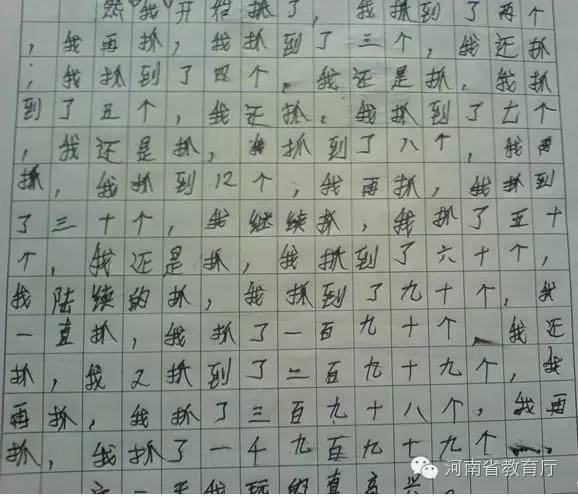 然我开始抓了，我抓到了两个
，我再抓，我抓到了三个，我还抓
；我抓到了四个，我还是抓，我抓
到了五个，我还抓，我抓到了七个
，我还是抓，抓到了八个，我再
抓，我抓到12个，我再抓，我抓到
了三十个，我继续抓，我抓了五十
个，我还是抓，我抓到了六十个，
我陆续的抓，我抓到了九十个，我
一直抓，我抓了一百九十个，我还
抓，我又抓到了二百九十九个，我
再抓，我抓了三百九十八个，我再
抓，我抓了一千九百九十九个
我玩的真高兴
河南省教育厅